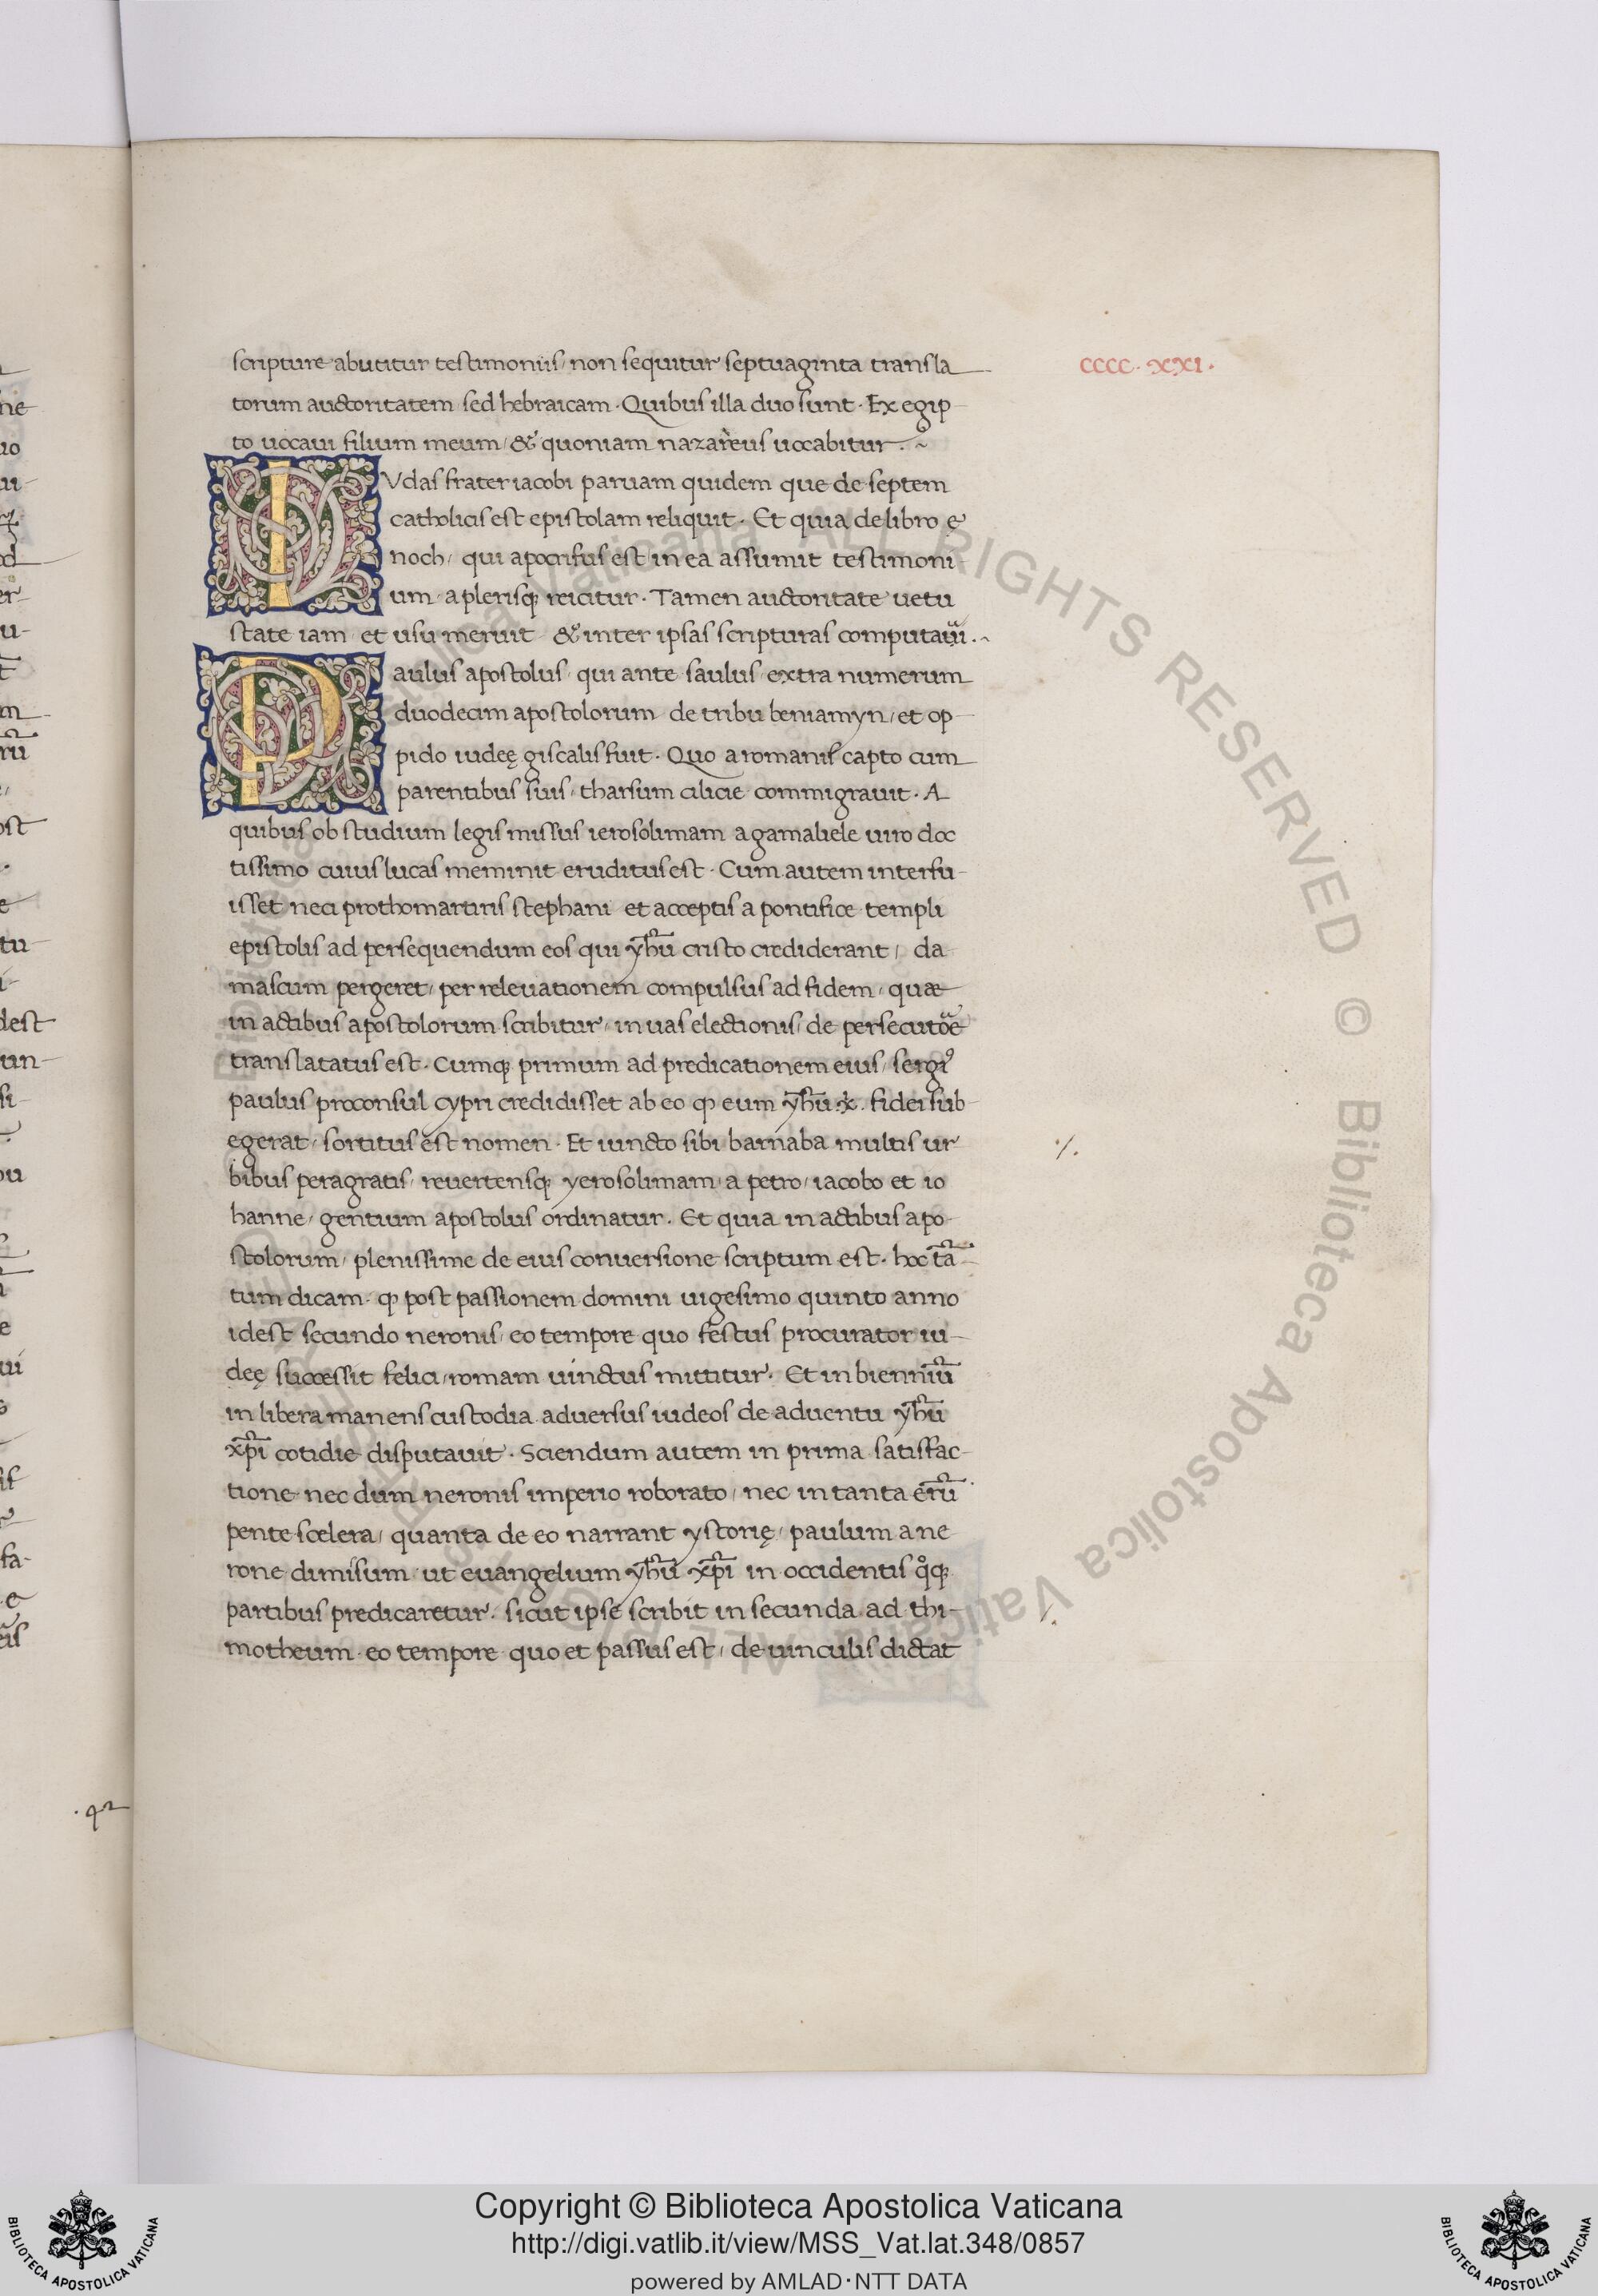 scripture abutitur testimoniis, non sequitur septuaginta transla
CCCC·XXI·
torum auctoritatem sed hebraicam. Quibus illa duo sunt. Ex egip
to vocavi filium meum, & quoniam nazareus vocabitur.
IUdas frater iacobi parvam quidem que de septem
catholicis est epistolam reliquit. Et quia de libro ę
noch, qui apocrifus est in ea assumit testimoni
um a plerisq; reicitur. Tamen auctoritate uetu
state iam et usu meruit & inter ipsas scripturas computari.
Paulus apostolus, qui ante saulus, extra numerum
duodecim apostolorum de tribu beniamyn, et op
pido iudeę giscalis fuit. Quo a romanis capto cum
parentibus suis, tharsum cilicie commigravit. A
quibus ob studium legis missus ierosolimam a gamaliele viro doc
tissimo cuius lucas meminit eruditus est. Cum autem interfu
isset neci prothomartiris stephani et acceptis a pontifice templi
epistolis ad persequendum eos qui yhū cristo crediderant, da
mascum pergeret, per relevationem compulsus ad fidem, quæ
in actibus apostolorum scribitur, in vas electionis, de persecutōe
translatatus est. Cumq; primum ad predicationem eius, sergi⁹
paulus proconsul cypri credidisset ab eo ꝙ eum yhū .x. fidei sub
egerat, sortitus est nomen. Et iuncto sibi barnaba multis ur
bibus peragratis, revertensq; yerosolimam, a petro, iacobo et io
hanne, gentium apostolus ordinatur. Et quia in actibus apo
stolorum, plenissime de eius conversione scriptum est. hoc tā
tum dicam ꝙ post passionem domini vigesimo quinto anno
idest secundo neronis, eo tempore quo festus procurator iu
deę successit felici, romam vinctus mittitur. Et in bienniū
in libera manens custodia adversus iudeos de adventu yhū
xpī cotidie disputavit. Sciendum autem in prima satisfac
tione nec dum neronis imperio roborato, nec in tanta erū
pente scelera, quanta de eo narrant ystorię, paulum a ne
rone dimisum, ut evangelium yhū xpī in occidentis qͦq;
partibus predicaretur. sicut ipse scribit in secunda ad thi
motheum eo tempore quo et passus est, de vinculis dictat
Biblioteca Apostolica Vaticana ALL RIGHTS RESERVED ©
Copyright © Biblioteca Apostolica Vaticana
http://digi.vatlib.it/view/MSS_Vat.lat.348/0857
powered by AMLAD·NTT DATA
BIBLIOTECA APOSTOLICA VATICANA
BIBLIOTECA APOSTOLICA VATICANA